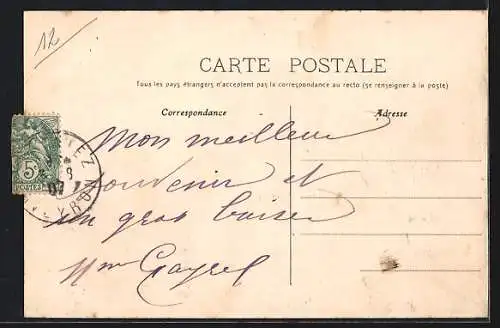 12
CARTE POSTALE
Tous les pays étrangers n'acceptent pas la correspondance au recto (se renseigner à la poste)
Correspondance
Adresse
Mon meilleur
souvenir et
un gros baiser
Mme Gayrel
5